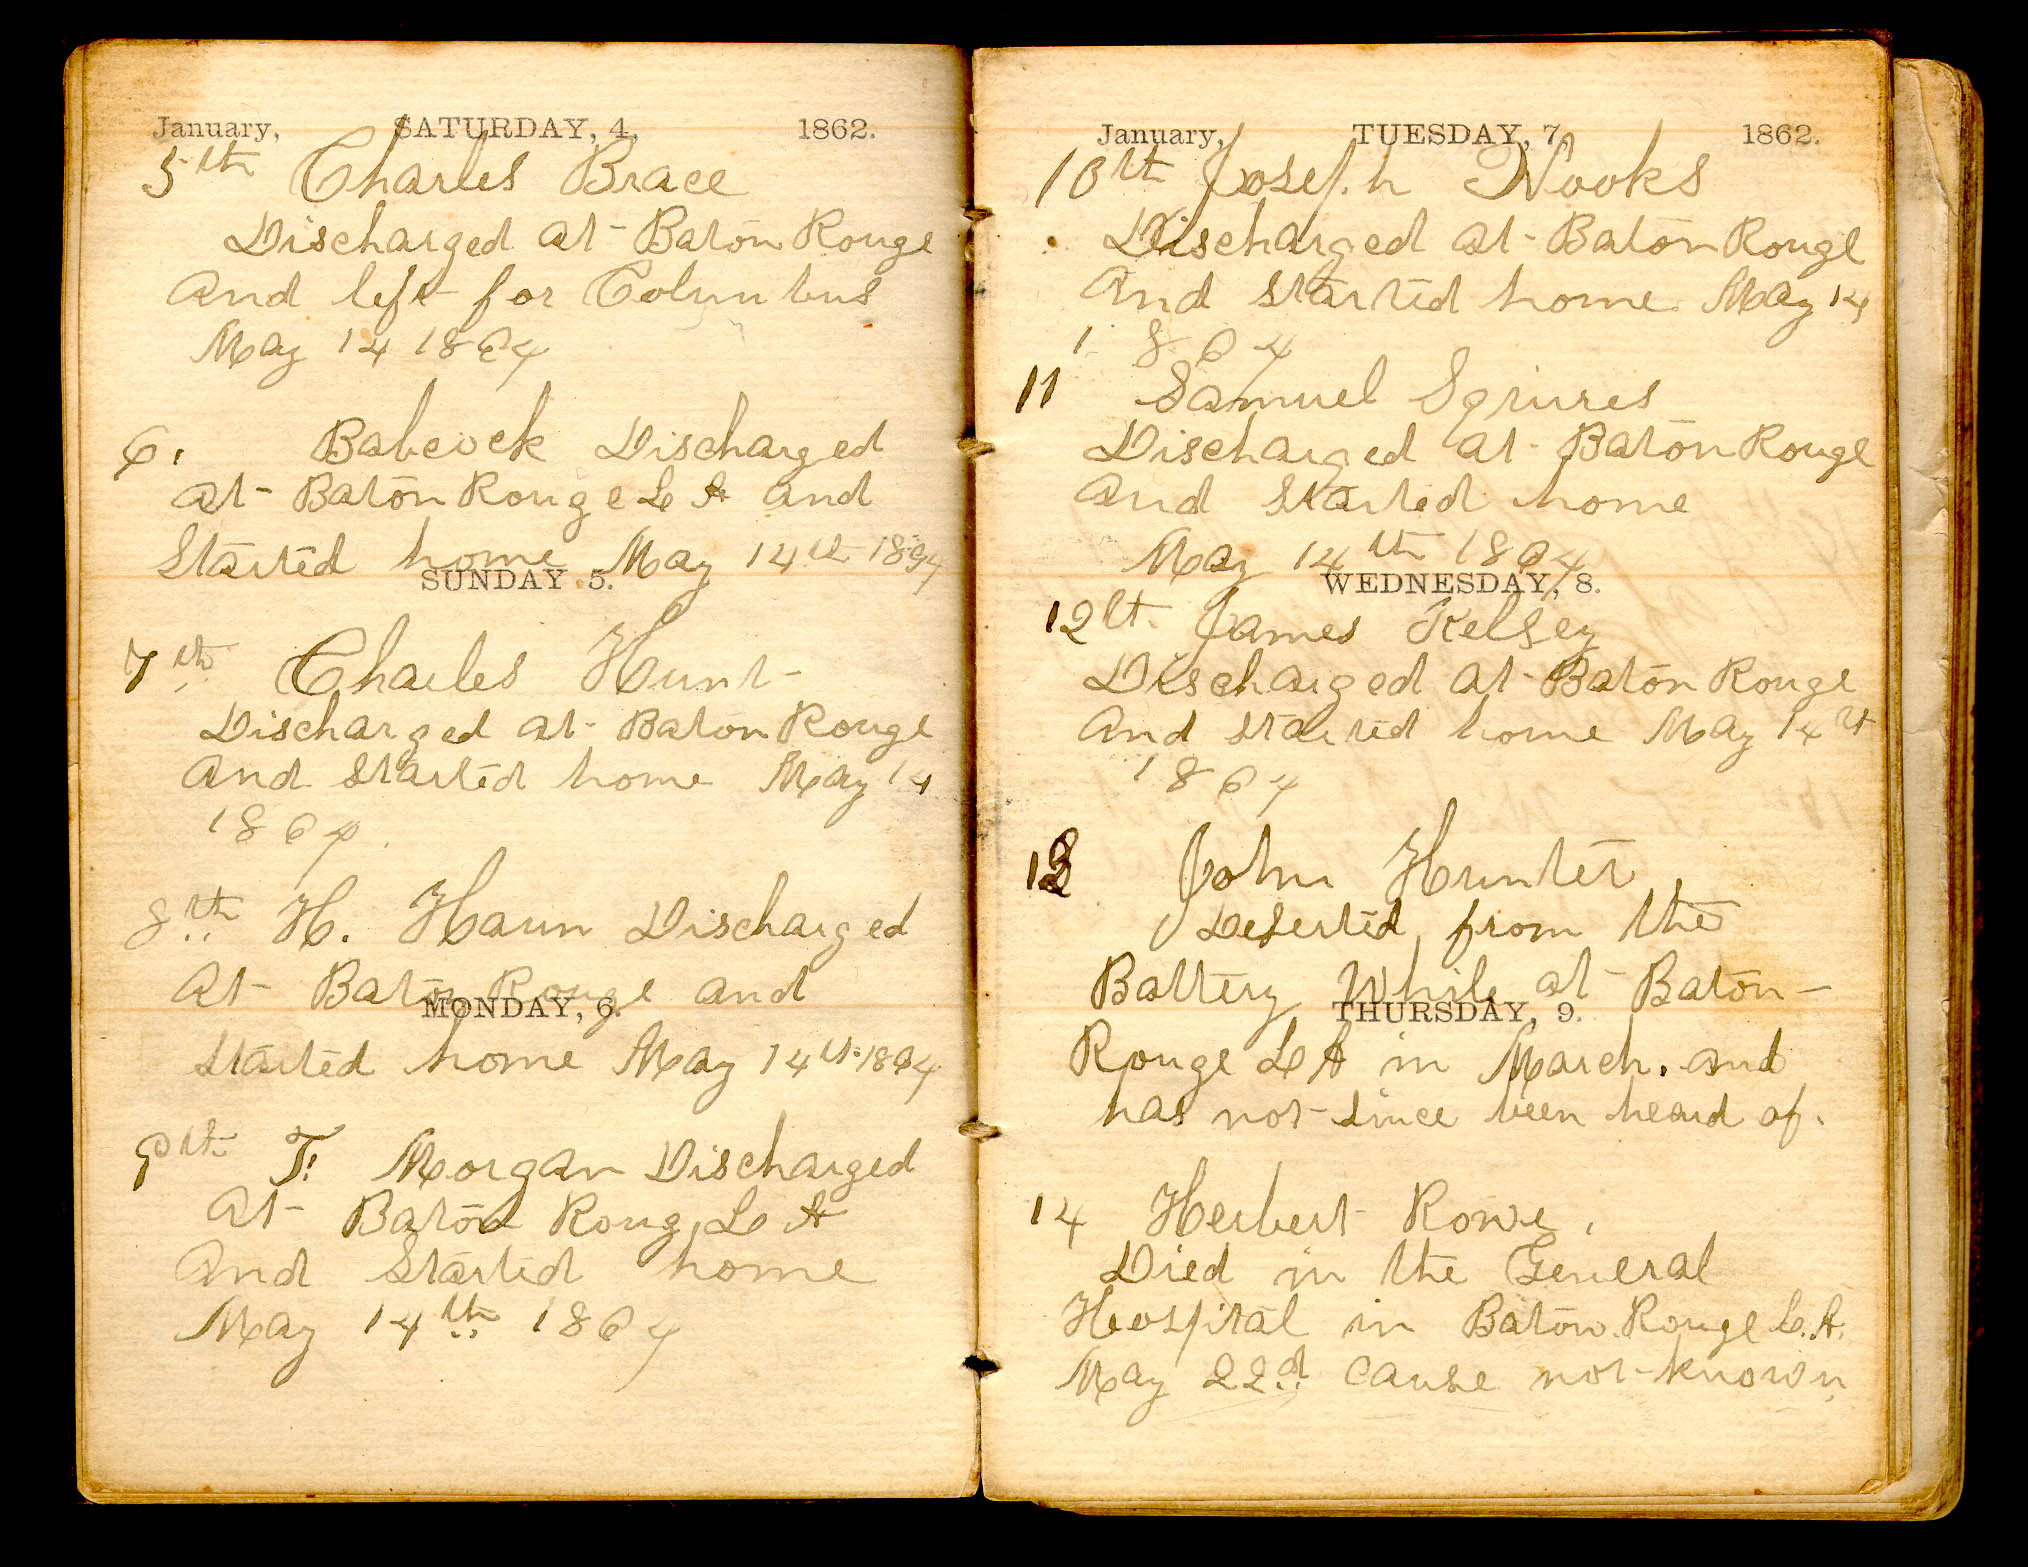 January, SATURDAY, 4, 1862.
5th Charles Brace
Discharged at Baton Rouge
and left for Columbus
May 14 1864
6. Babcock Discharged
at Baton Rouge LA and
Started home May 14th 1864
SUNDAY 5.
7th Charles Hunt
Discharged at Baton Rouge
and started home May 14
1864.
8th H. Haun Discharged
At Baton Rouge and
MONDAY, 6.
started home May 14th 1864
9th T. Morgan Discharged
At Baton Roug, LA
and Started home
May 14th 1864
January, TUESDAY, 7, 1862.
10th Joseph Nooks
Discharged at Baton Rouge
and started home May 14
1864
11 Samuel Sqiures
Discharged at Baton Rouge
and started home
May 14th 1864
WEDNESDAY, 8.
12th James Kelsey
Discharged at Baton Rouge
and started home May 14th
1864
13 John Hunter
Deserted from the
Battery While at Baton-
THURSDAY, 9.
Rouge LA in March. and
has not since been heard of.
14 Herbert Rowe,
Died in the General
Hospital in Baton Rouge L.A.
May 22d cause not known